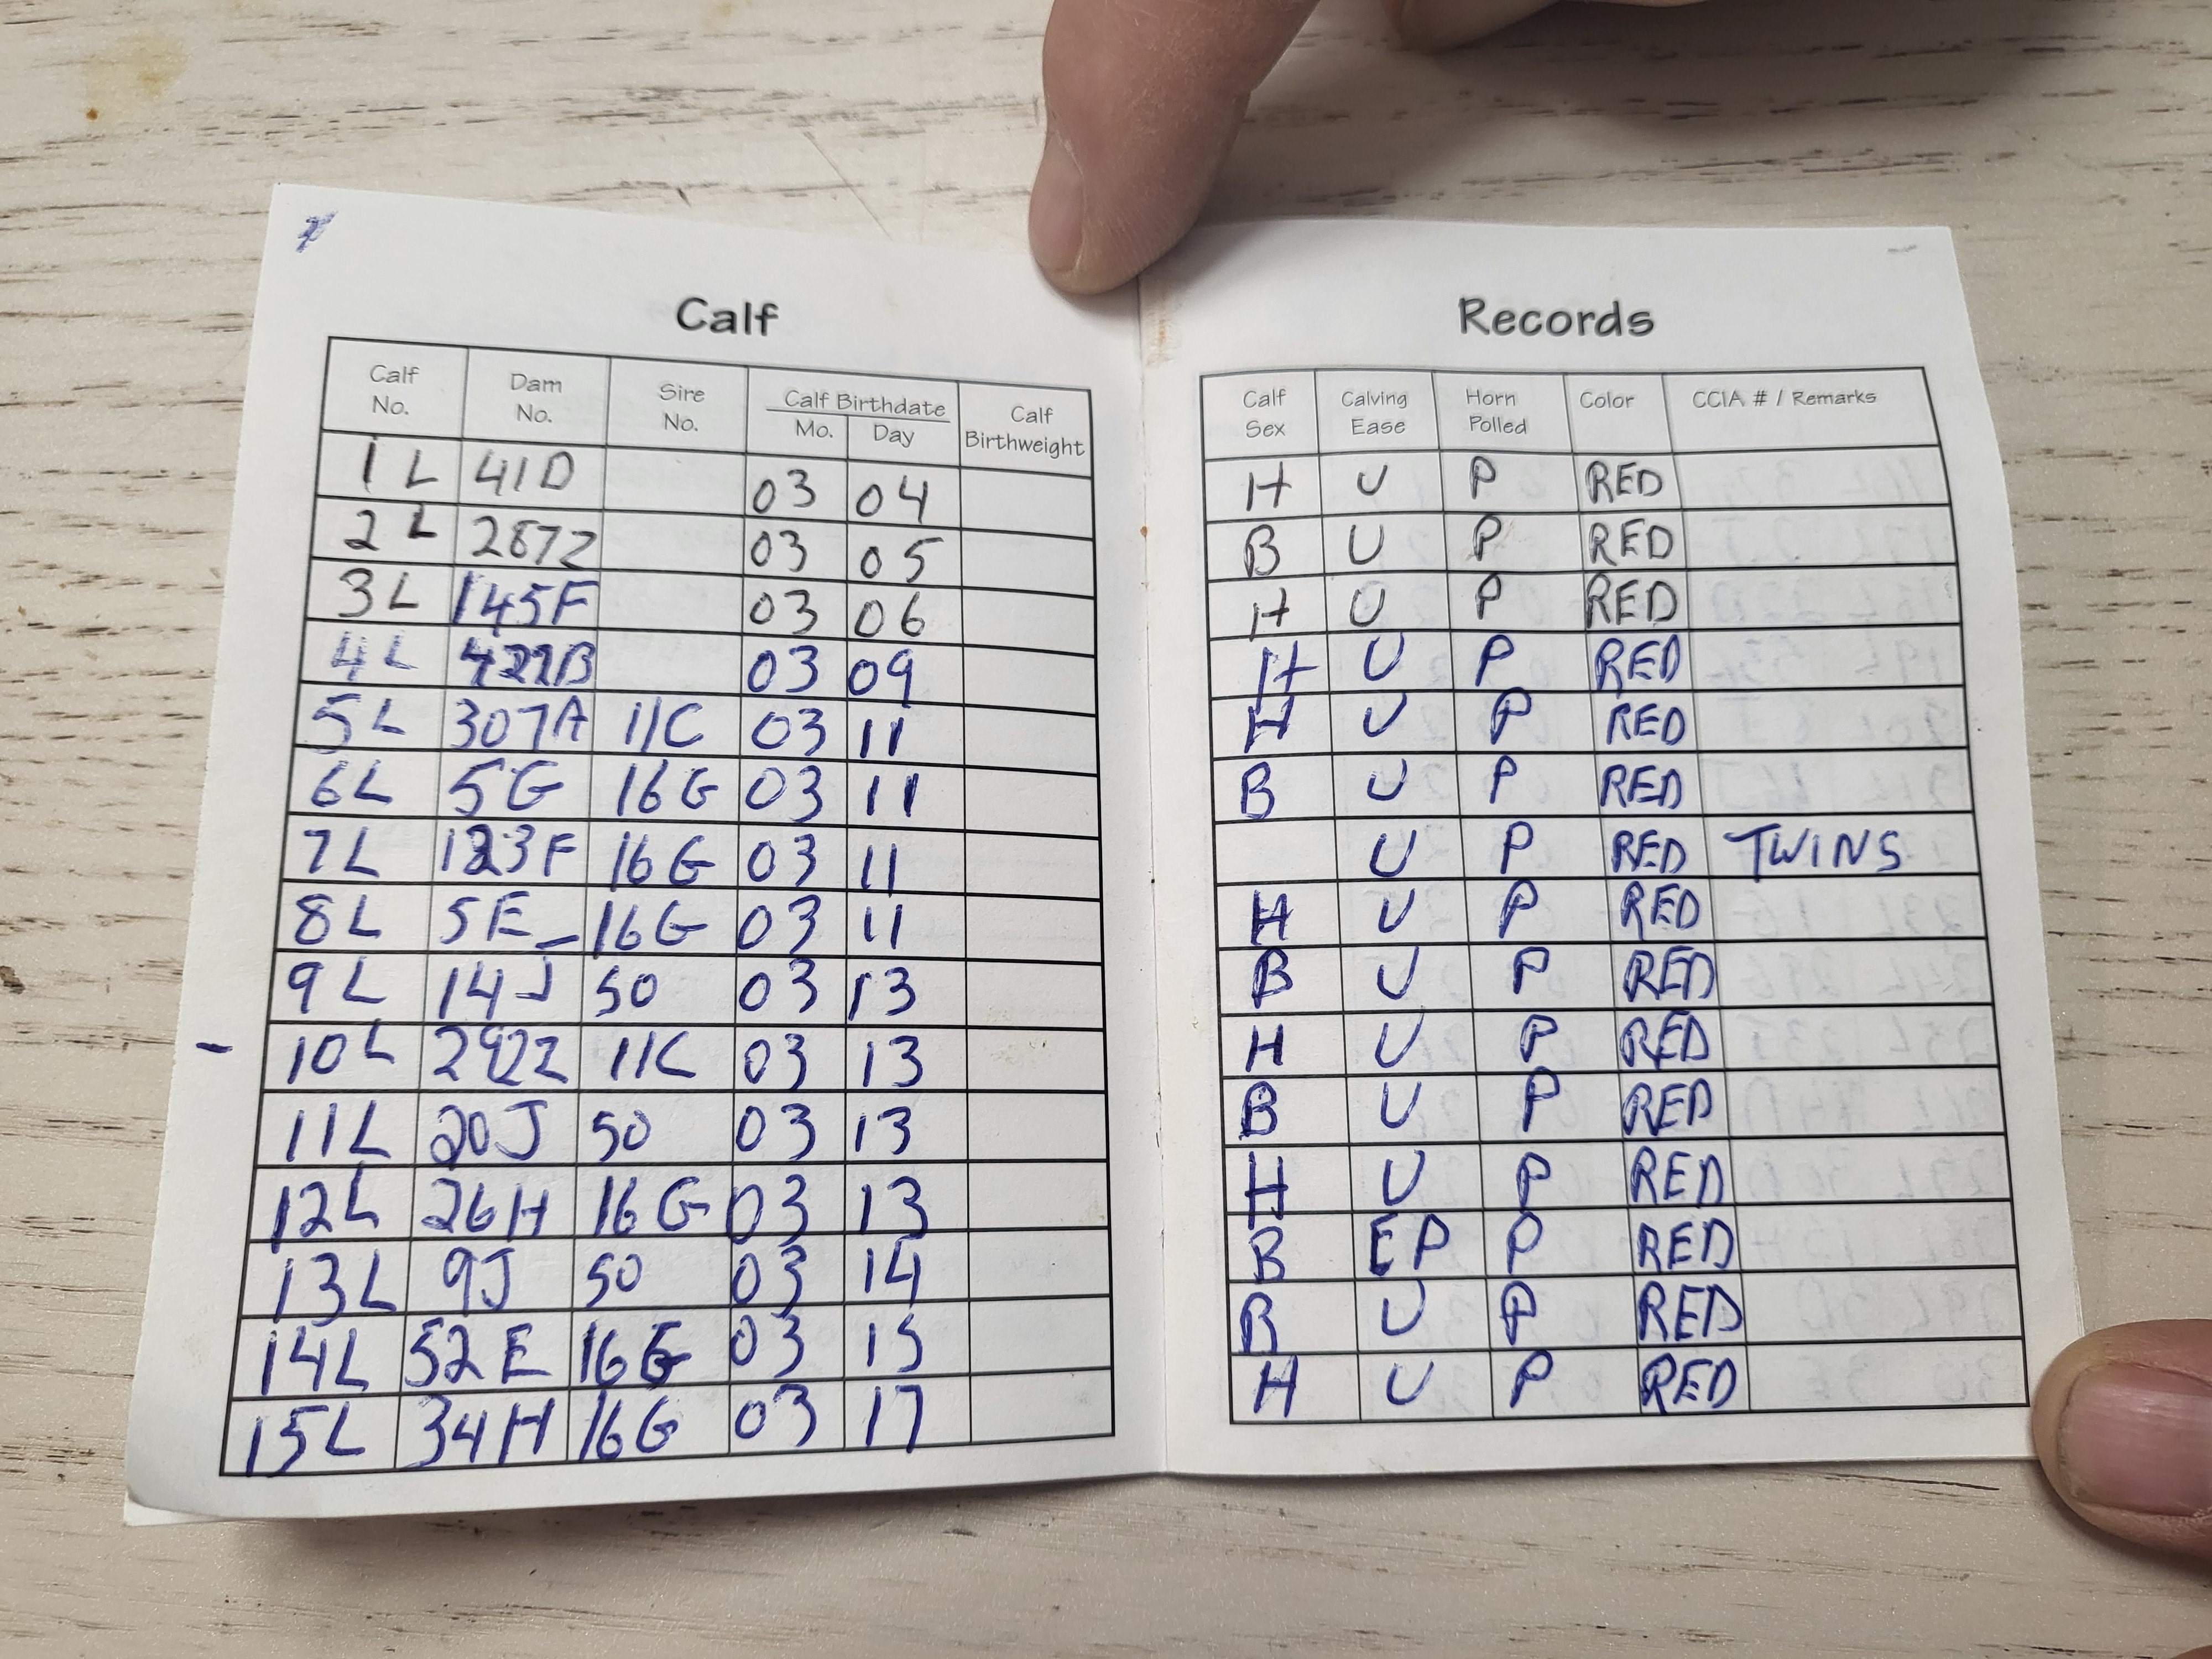 Calf Records
Calf No. Dam No. Sire No. Calf Birthdate Mo. Day Calf Birthweight Calf Sex Calving Ease Horn Polled Color CCIA # / Remarks
1L 41D 03 04 H U P RED
2L 287Z 03 05 B U P RED
3L 145F 03 06 H U P RED
4L 429B 03 09 H U P RED
5L 307A 11C 03 11 H U P RED
6L 5G 16G 03 11 B U P RED
7L 123F 16G 03 11 U P RED TWINS
8L 5E 16G 03 11 H U P RED
9L 14J 50 03 13 B U P RED
10L 292Z 11C 03 13 H U P RED
11L 20J 50 03 13 B U P RED
12L 26H 16G 03 13 H U P RED
13L 9J 50 03 14 B EP P RED
14L 52E 16G 03 15 B U P RED
15L 34H 16G 03 17 H U P RED